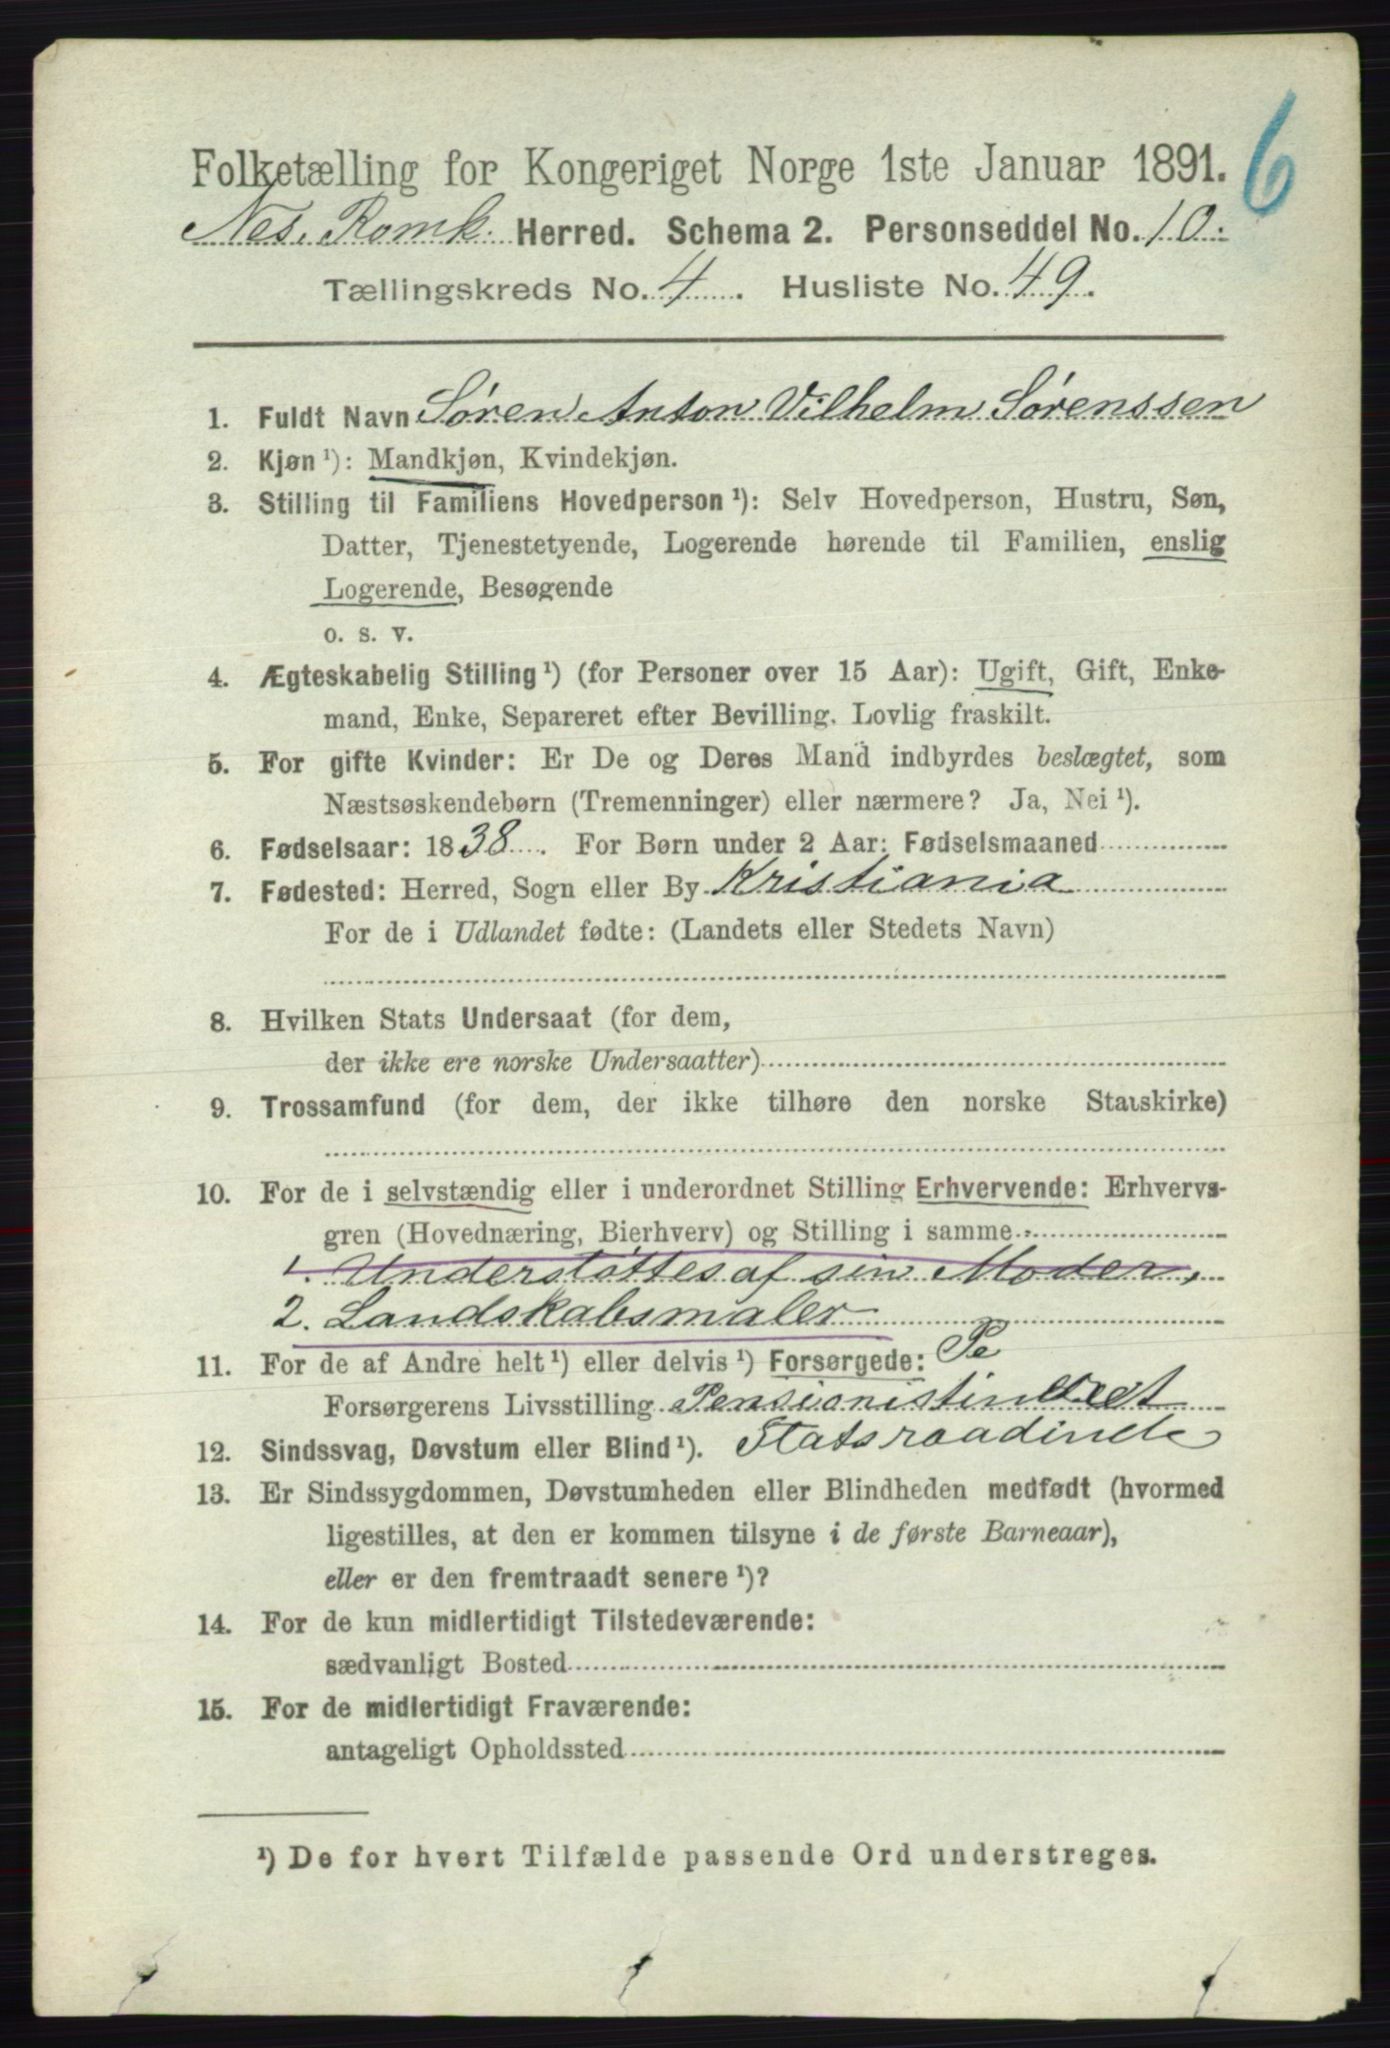 6
Folketælling for Kongeriget Norge 1ste Januar 1891.
Nes. Romk. Herred. Schema 2. Personseddel No. 10.
Tællingskreds No. 4. Husliste No. 49.
1. Fuldt Navn Søren Anton Vilhelm Sørenssen
2. Kjøn ¹): Mandkjøn, Kvindekjøn.
3. Stilling til Familiens Hovedperson ¹): Selv Hovedperson, Hustru, Søn,
Datter, Tjenestetyende, Logerende hørende til Familien, enslig
Logerende, Besøgende
o. s. v.
4. Ægteskabelig Stilling ¹) (for Personer over 15 Aar): Ugift, Gift, Enke-
mand, Enke, Separeret efter Bevilling. Lovlig fraskilt.
5. For gifte Kvinder: Er De og Deres Mand indbyrdes beslægtet, som
Næstsøskendebørn (Tremenninger) eller nærmere? Ja, Nei ¹).
6. Fødselsaar: 1838. For Børn under 2 Aar: Fødselsmaaned
7. Fødested: Herred, Sogn eller By Kristiania
For de i Udlandet fødte: (Landets eller Stedets Navn)
8. Hvilken Stats Undersaat (for dem,
der ikke ere norske Undersaatter)
9. Trossamfund (for dem, der ikke tilhøre den norske Statskirke)
10. For de i selvstændig eller i underordnet Stilling Erhvervende: Erhvervs-
gren (Hovednæring, Bierhverv) og Stilling i samme
1. Understøttes af sin Moder,
2. Landskabsmaler
11. For de af Andre helt ¹) eller delvis ¹) Forsørgede: Pe
Forsørgerens Livsstilling Pensionistinde
12. Sindssvag, Døvstum eller Blind ¹). Statsraadinde
13. Er Sindssygdommen, Døvstumheden eller Blindheden medfødt (hvormed
ligestilles, at den er kommen tilsyne i de første Barneaar),
eller er den fremtraadt senere ¹)?
14. For de kun midlertidigt Tilstedeværende:
sædvanligt Bosted
15. For de midlertidigt Fraværende:
antageligt Opholdssted
¹) De for hvert Tilfælde passende Ord understreges.